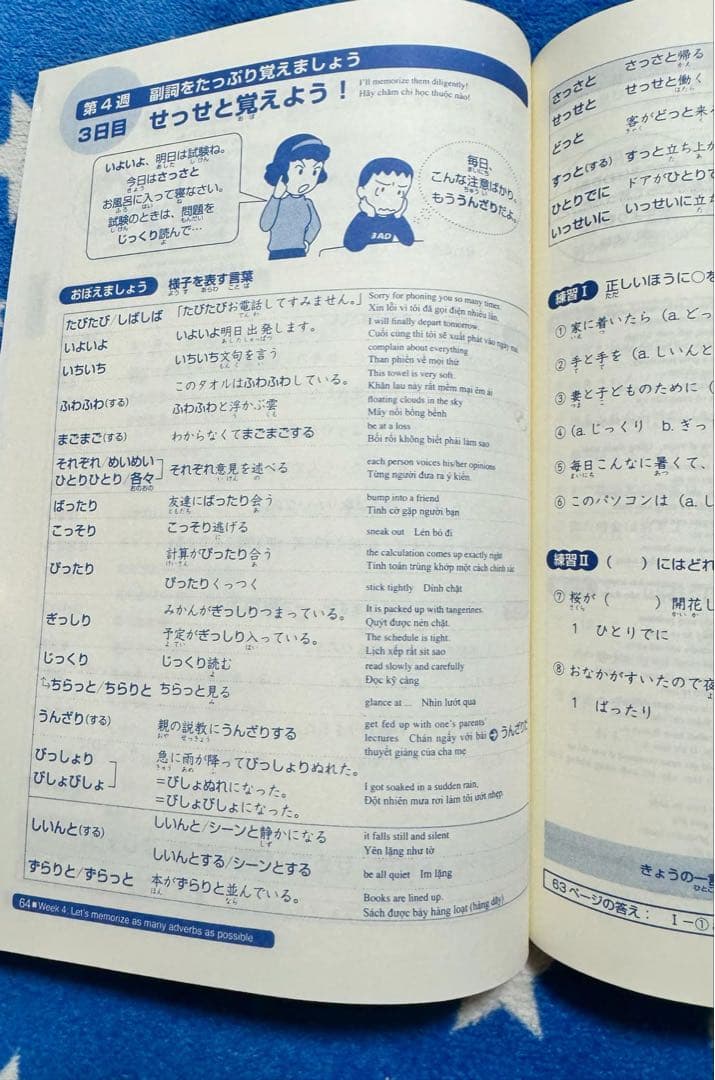 第4週 副詞をたっぷり覚えましょう
3日目 せっせと覚えよう！
おぼ
I'll memorize them diligently!
Hãy chăm chỉ học thuộc nào!
いよいよ、明日は試験ね。
あした しけん
今日はさっさと
きょう
お風呂に入って寝なさい。
ふろ はい ね
試験のときは、問題を
しけん もんだい
じっくり読んで…
よ
毎日、
まいにち
こんな注意ばかり、
ちゅうい
もううんざりだよ。
BAD
おぼえましょう 様子を表す言葉
ようす あらわ ことば
たびたび/しばしば 「たびたびお電話してすみません。」 Sorry for phoning you so many times.
でんわ
Xin lỗi vì tôi đã gọi điện nhiều lần.
いよいよ いよいよ明日出発します。 I will finally depart tomorrow.
あした しゅっぱつ
Cuối cùng thì tôi sẽ xuất phát vào ngày mai
いちいち いちいち文句を言う complain about everything
もんく い
Than phiền về mọi thứ
ふわふわ(する) このタオルはふわふわしている。 This towel is very soft.
Khăn lau này rất mềm mại êm ái
ふわふわと浮かぶ雲 floating clouds in the sky
う くも
Mây nổi bồng bềnh
まごまご(する) わからなくてまごまごする be at a loss
Bối rối không biết phải làm sao
それぞれ/めいめい
ひとりひとり/各々
おのおの
それぞれ意見を述べる each person voices his/her opinions
いけん の
Từng người đưa ra ý kiến.
ばったり 友達にばったり会う bump into a friend
ともだち あ
Tình cờ gặp người bạn
こっそり こっそり逃げる sneak out Lén bỏ đi
に
ぴったり 計算がぴったり合う the calculation comes up exactly right
けいさん あ
Tính toán trùng khớp một cách chính xác
ぴったりくっつく stick tightly Dính chặt
ぎっしり みかんがぎっしりつまっている。 It is packed with tangerines.
Quýt được nén chặt.
予定がぎっしり入っている。 The schedule is tight.
よてい はい
Lịch xếp rất sít sao
じっくり じっくり読む read slowly and carefully
よ
Đọc kỹ càng
ちらっと/ちらりと ちらっと見る glance at ... Nhìn lướt qua
み
うんざり(する) 親の説教にうんざりする get fed up with one's parents'
おや せっきょう
lectures Chán ngấy với bài
thuyết giảng của cha mẹ
びっしょり
びしょびしょ
急に雨が降ってびっしょりぬれた。
きゅう あめ ふ
＝びしょぬれになった。 I got soaked in a sudden rain.
＝びしょびしょになった。 Đột nhiên mưa rơi làm tôi ướt nhẹp.
しいんと(する) しいんと/シーンと静かになる it falls still and silent
しず
Yên lặng như tờ
しいんとする/シーンとする be all quiet Im lặng
ずらりと/ずらっと 本がずらりと並んでいる。 Books are lined up.
ほん なら
Sách được bày hàng loạt (hàng dãy)
64 ■ Week 4 Let's memorize as many adverbs as possible.
さっさと さっさと帰る
かえ
せっせと せっせと働く
はたら
どっと 客がどっと来る
きゃく
すっと(する) すっと立ち上が
た あ
ひとりでに ドアがひとりで
いっせいに いっせいに立ち
た
練習Ⅰ 正しいほうに○を
ただ
① 家に着いたら (a. どっ
いえ つ
② 手と手を (a. しいんと
て て
③ 妻と子どものために (
つま こ
④ (a. じっくり b. ぎっ
⑤ 毎日こんなに暑くて、
まいにち あつ
⑥ このパソコンは (a. し
練習Ⅱ ( )にはどれ
⑦ 桜が ( ) 開花し
さくら かいか
1 ひとりでに
⑧ おなかがすいたので夜
よ
1 ばったり
きょうの一言
ひとこと
63ページの答え： Ⅰ−①
こた